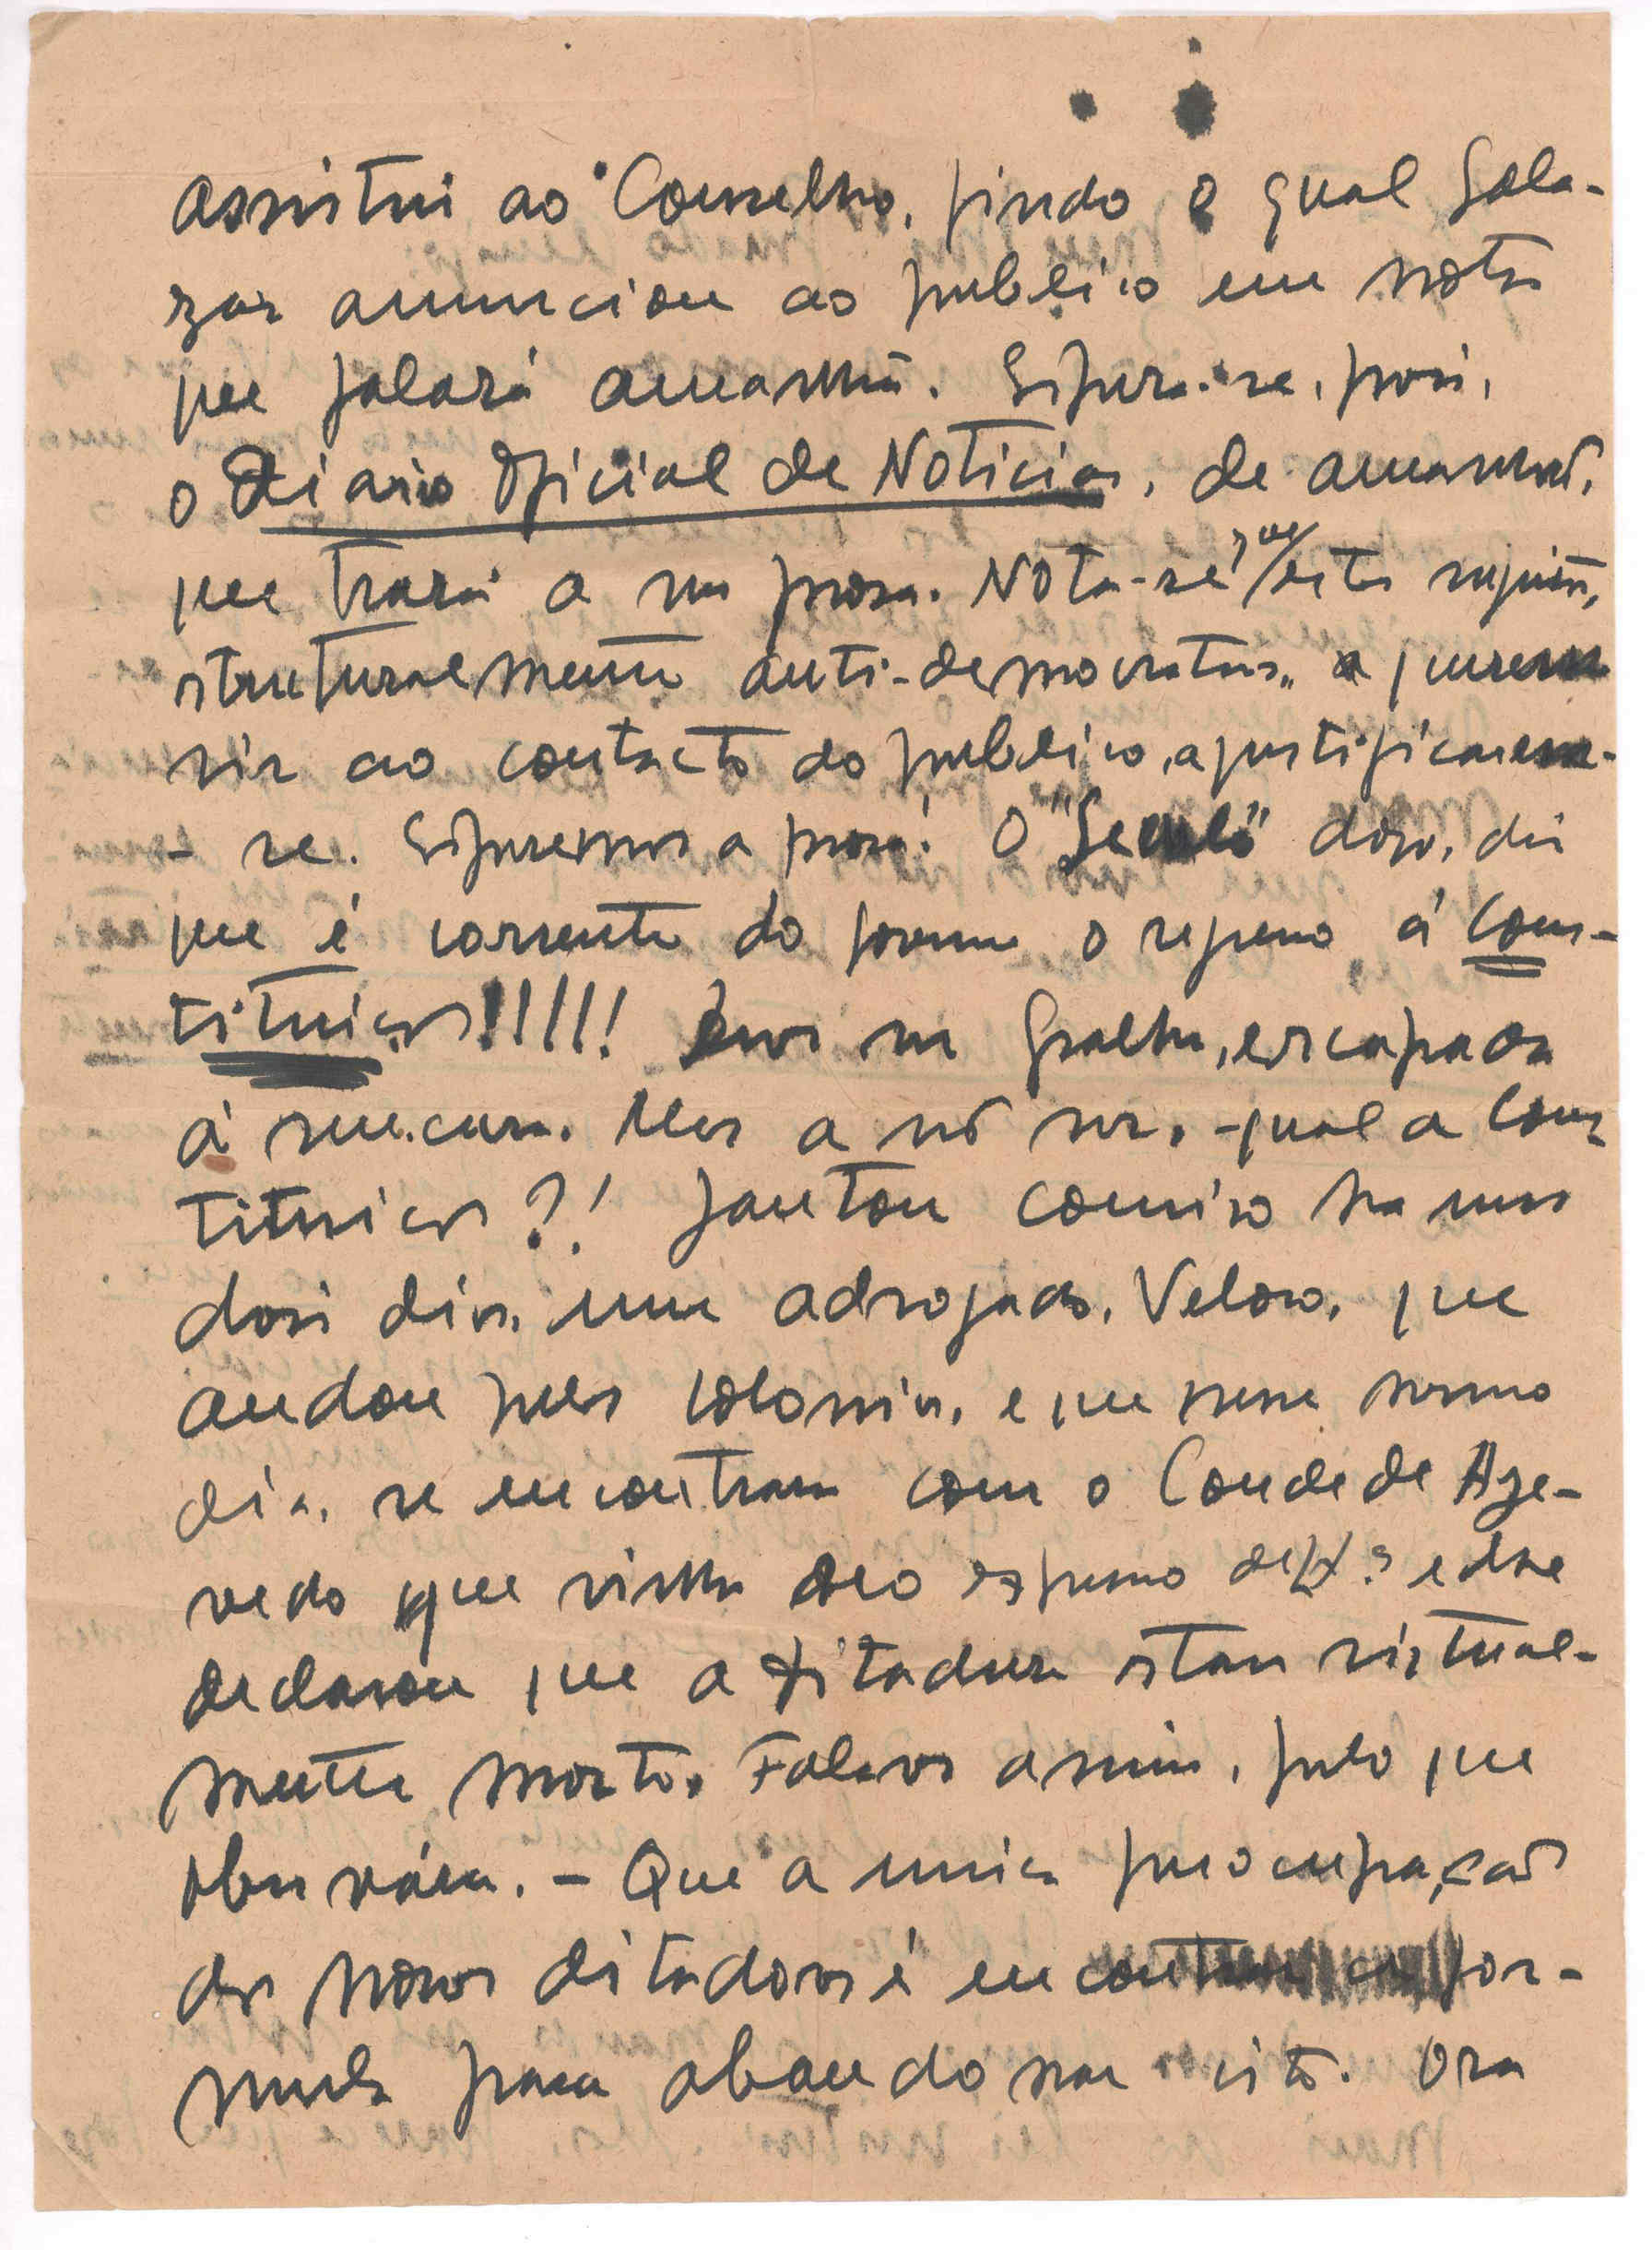 assistui ao Conselho, findo o qual Sala-
zar anunciou ao publico em nota
que falará amanhã. Espera-se, pois,
o Diario Oficial de Noticias, de amanhã,
que trará a sua prosa. Nota-se que estes sujeitos,
struturalmente anti-democratas, querem
vir ao contacto do publico, a justificarem-
- se. Esperemos a prosa! O "Seculo" diz
que é corrente do governo o regresso á Cons-
tituição!!!!! Deve ser Gralha, escapada
á censura. Mas a não ser, - qual a Cons-
tituição?! Jantou comigo ha uns
dois dias, um advogado, Veloso, que
andou pelas Colonias, e que nesse mesmo
dia, se encontrara com o Conde de Aze-
vedo que vinha do e lhe
declarou que a ditadura stava virtual-
mente morta. Falava assim, pelo que
observára. - Que a unica preocupação
dos novos ditadores é encontrar for-
mula para abandonar isto. Ora